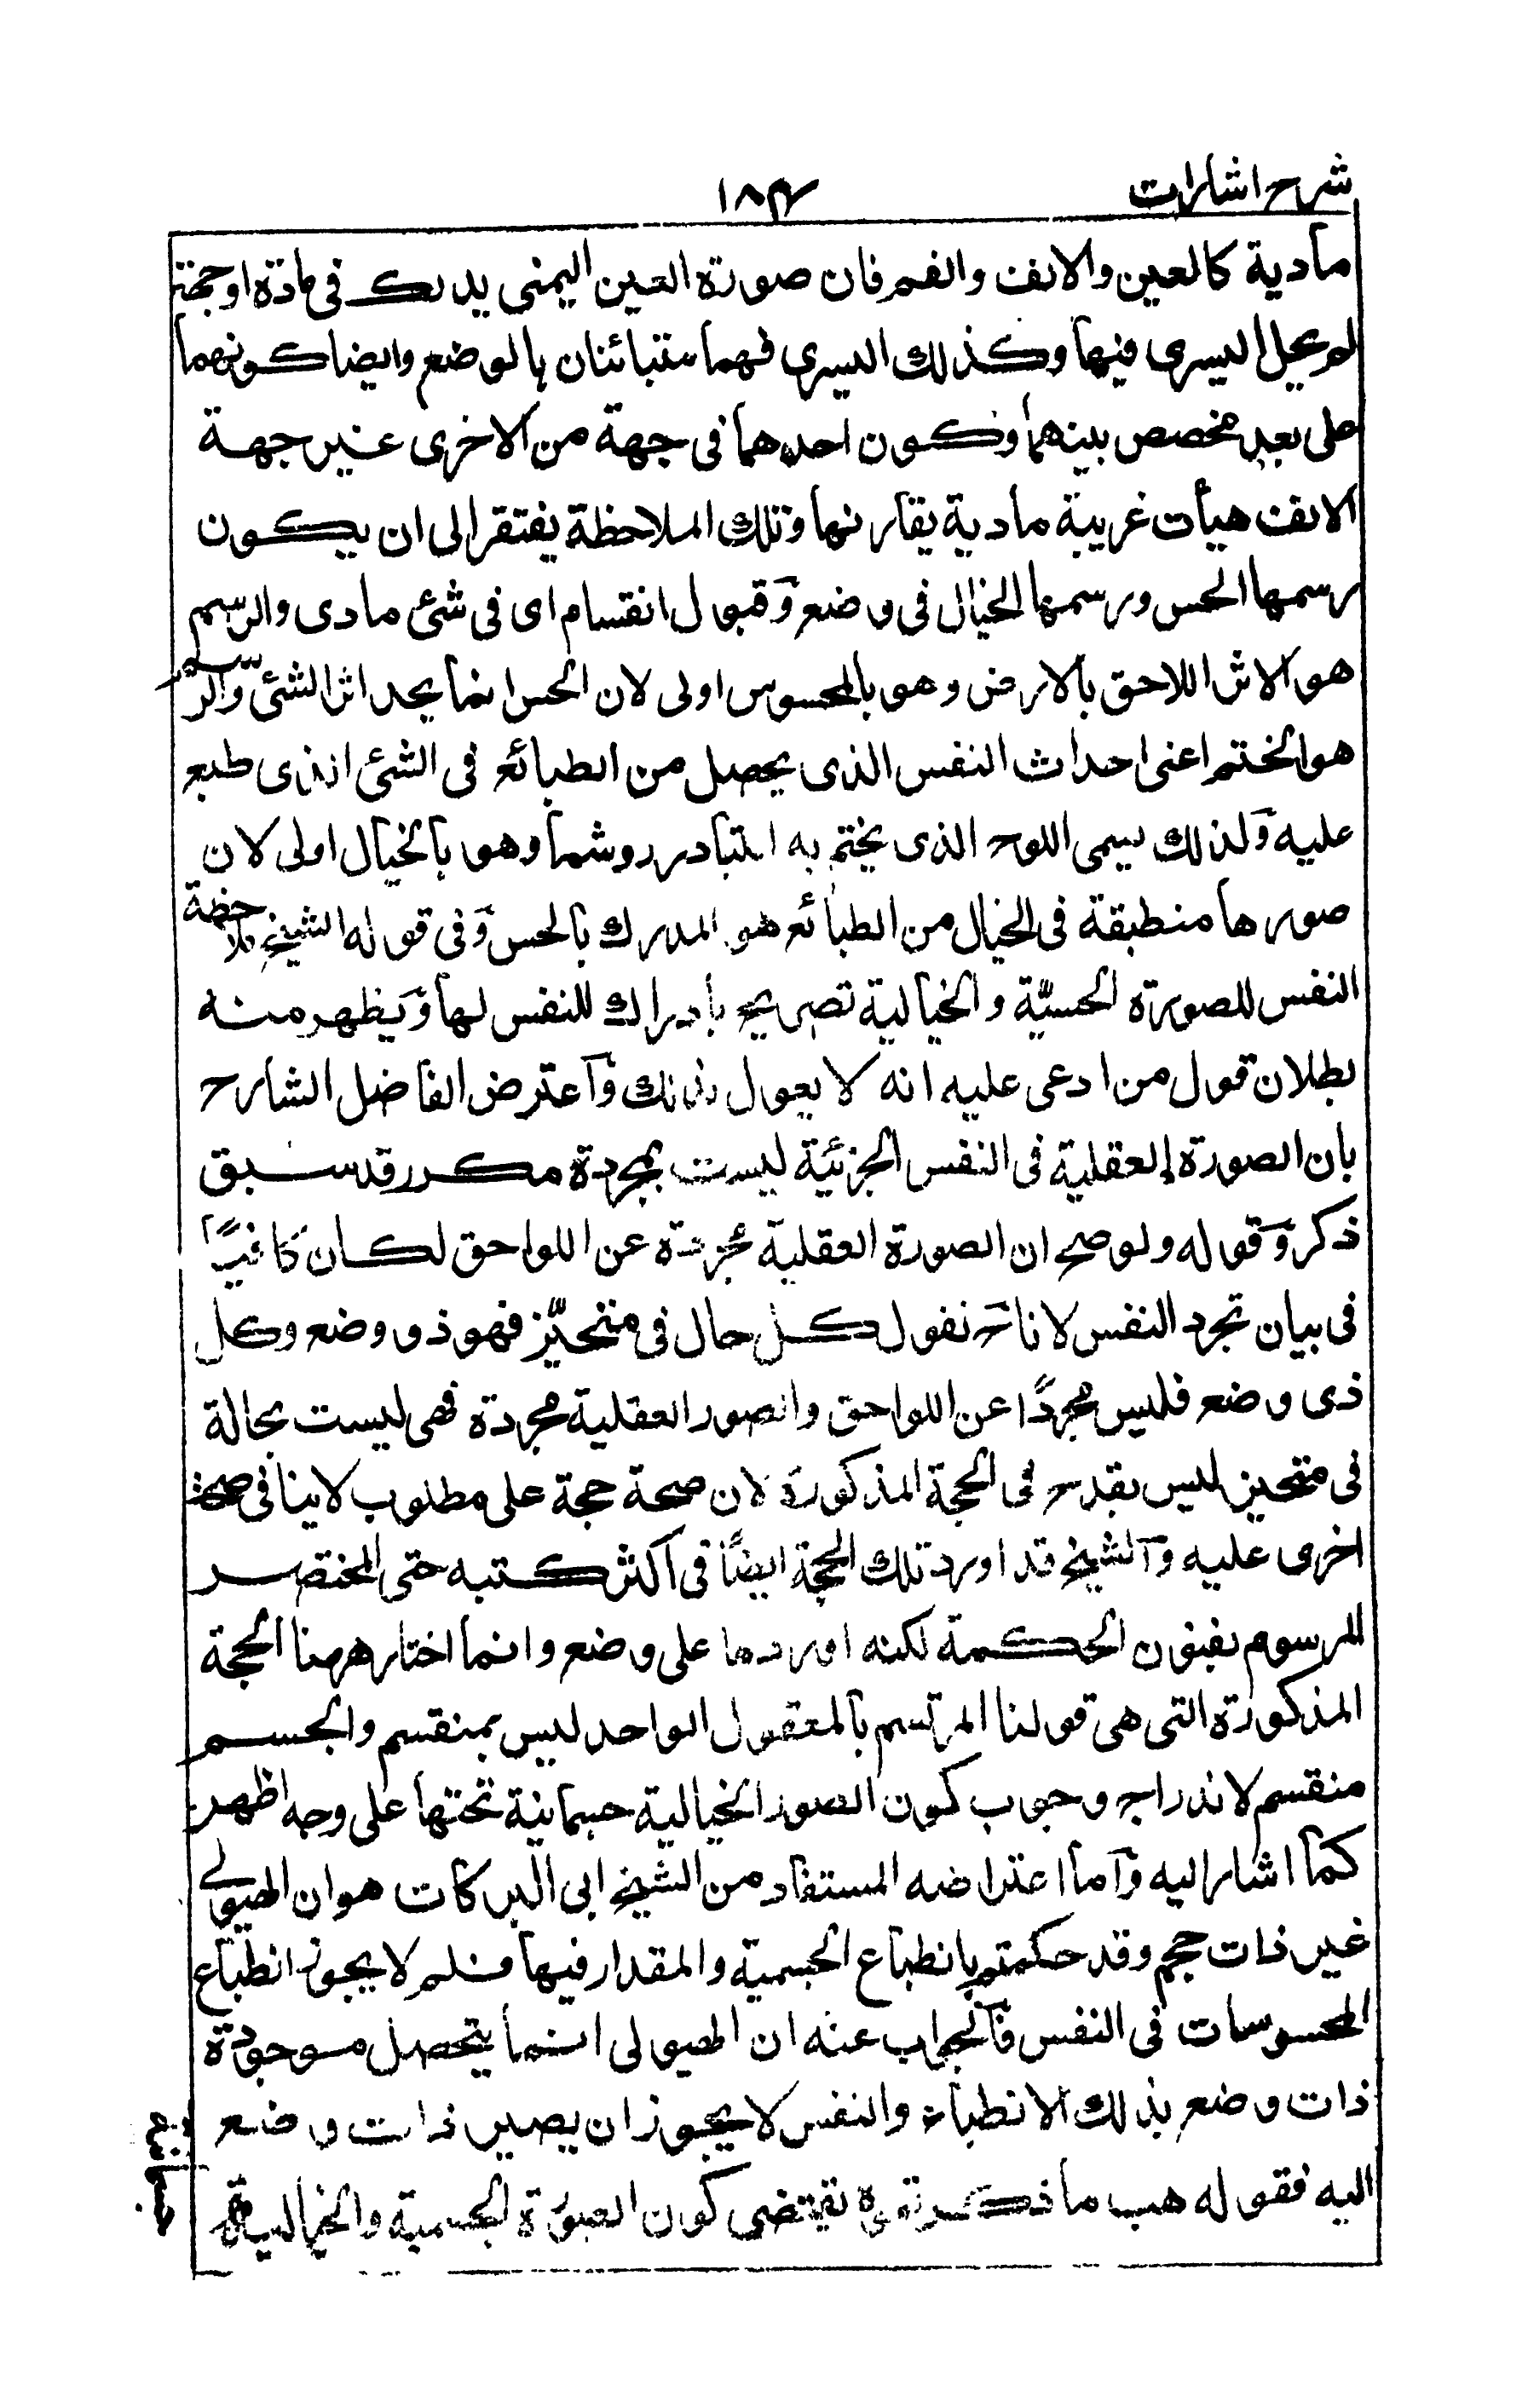 شرح اشارات
۱۸۴
مادية كالعين والانف والفم فان صورة العين اليمنى يدرك فى مادة او جهة
لم يحل اليسرى فيها وكذلك اليسرى فهما متبائنان بالوضع وايضا كونهما
على بعد مخصص بينهما وكون احدهما فى جهة من الاخرى غير جهة
الانف هيأت غريبة مادية يقارنها وتلك الملاحظة يفتقر الى ان يكون
رسمها الحس ورسمها الخيال فى وضع وقبول انقسام اى فى شئ مادى والرسم
هو الاثر اللاحق بالارض وهو بالمحسوس اولى لان الحس انما يجد اثر الشئ والرسم
هو الختم اعنى احداث النفس الذى يحصل من الطبائع فى الشئ الذى طبع
عليه ولذلك يسمى اللوح الذى يختم به البادر روشما وهو بالخيال اولى لان
صورها منطبقة فى الخيال من الطبائع هو المدرك بالحس وفى قوله الشيخ ملاحظة
النفس للصورة الحسيّة والخيالية تصريح بادراك للنفس لها ويظهر منه
بطلان قول من ادعى عليه انه لا يعول بذلك وآعترض الفاضل الشارح
بان الصورة العقلية فى النفس الجزئية ليست بمجردة مكرر قد سبق
ذكر وقوله ولو صح ان الصورة العقلية مجردة عن اللواحق لكان كافيًا
فى بيان تجرد النفس لانا نقول كل حال فى متحيّز فهو ذو وضع وكل
ذى وضع فليس مجردًا عن اللواحق والصور العقلية مجردة فهى ليست بحالة
فى متحيز ليس بقدح فى الحجة المذكورة لان صحة حجة على مطلوب لا ينافى صحة
اخرى عليه وآلشيخ قد اورد تلك الحجة ايضًا فى اكثر كتبه حتى المختصر
المرسوم بعيون الحكمة لكنه اوردها على وضع وانما اختار ههنا الحجة
المذكورة التى هى قولنا المرتسم بالمعقول الواحد ليس بمنقسم والجسم
منقسم لاندراج وجوب كون الصور الخيالية جسمانية تحتها على وجه اظهر
كما اشار اليه وآما اعتراضه المستفاد من الشيخ ابى البركات هو ان الهيولى
غير ذات حجم وقد حكمتم بانطباع الجسمية والمقدار فيها فلم لا يجوز انطباع
المحسوسات فى النفس فآلجواب عنه ان الهيولى انما يتحصل موجودة
ذات وضع بذلك الانطباع والنفس لا يجوز ان يصير ذات وضع
اليه فقوله هب ما ذكرتموه يقتضى كون الصورة الجسمية والخيالية